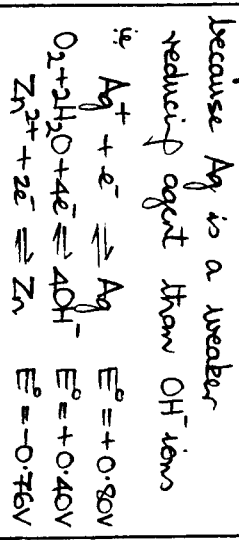 because Ag is a weaker
reducing agent than OH⁻ ions
ie Ag⁺ + e⁻ ⇌ Ag E° = +0.80V
O₂ + 2H₂O + 4e⁻ ⇌ 4OH⁻ E° = +0.40V
Zn²⁺ + 2e⁻ ⇌ Zn E° = -0.76V